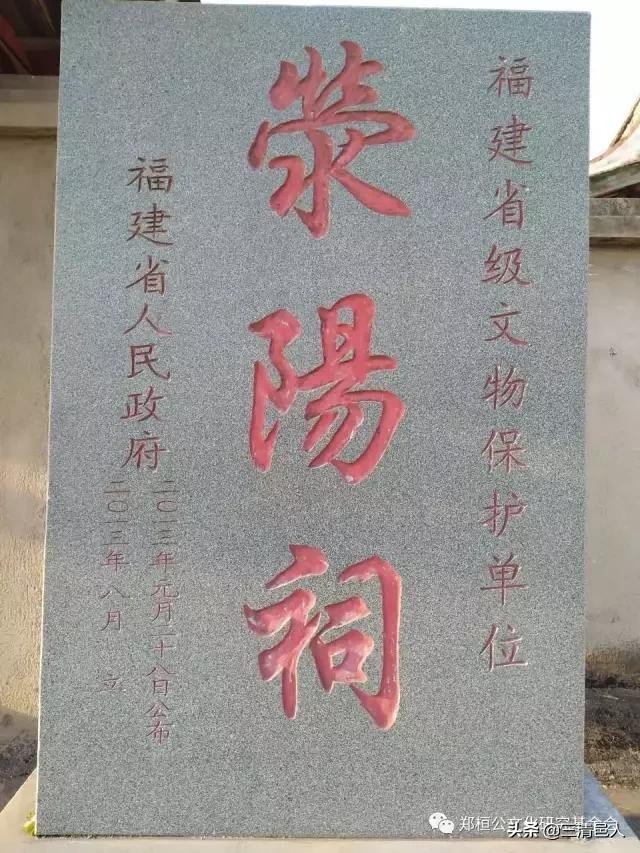 福建省级文物保护单位
荥陽祠
福建省人民政府
二〇一三年元月二十八日公布
二〇一三年八月 立
郑桓公文化研究基金会
头条@三清巨人